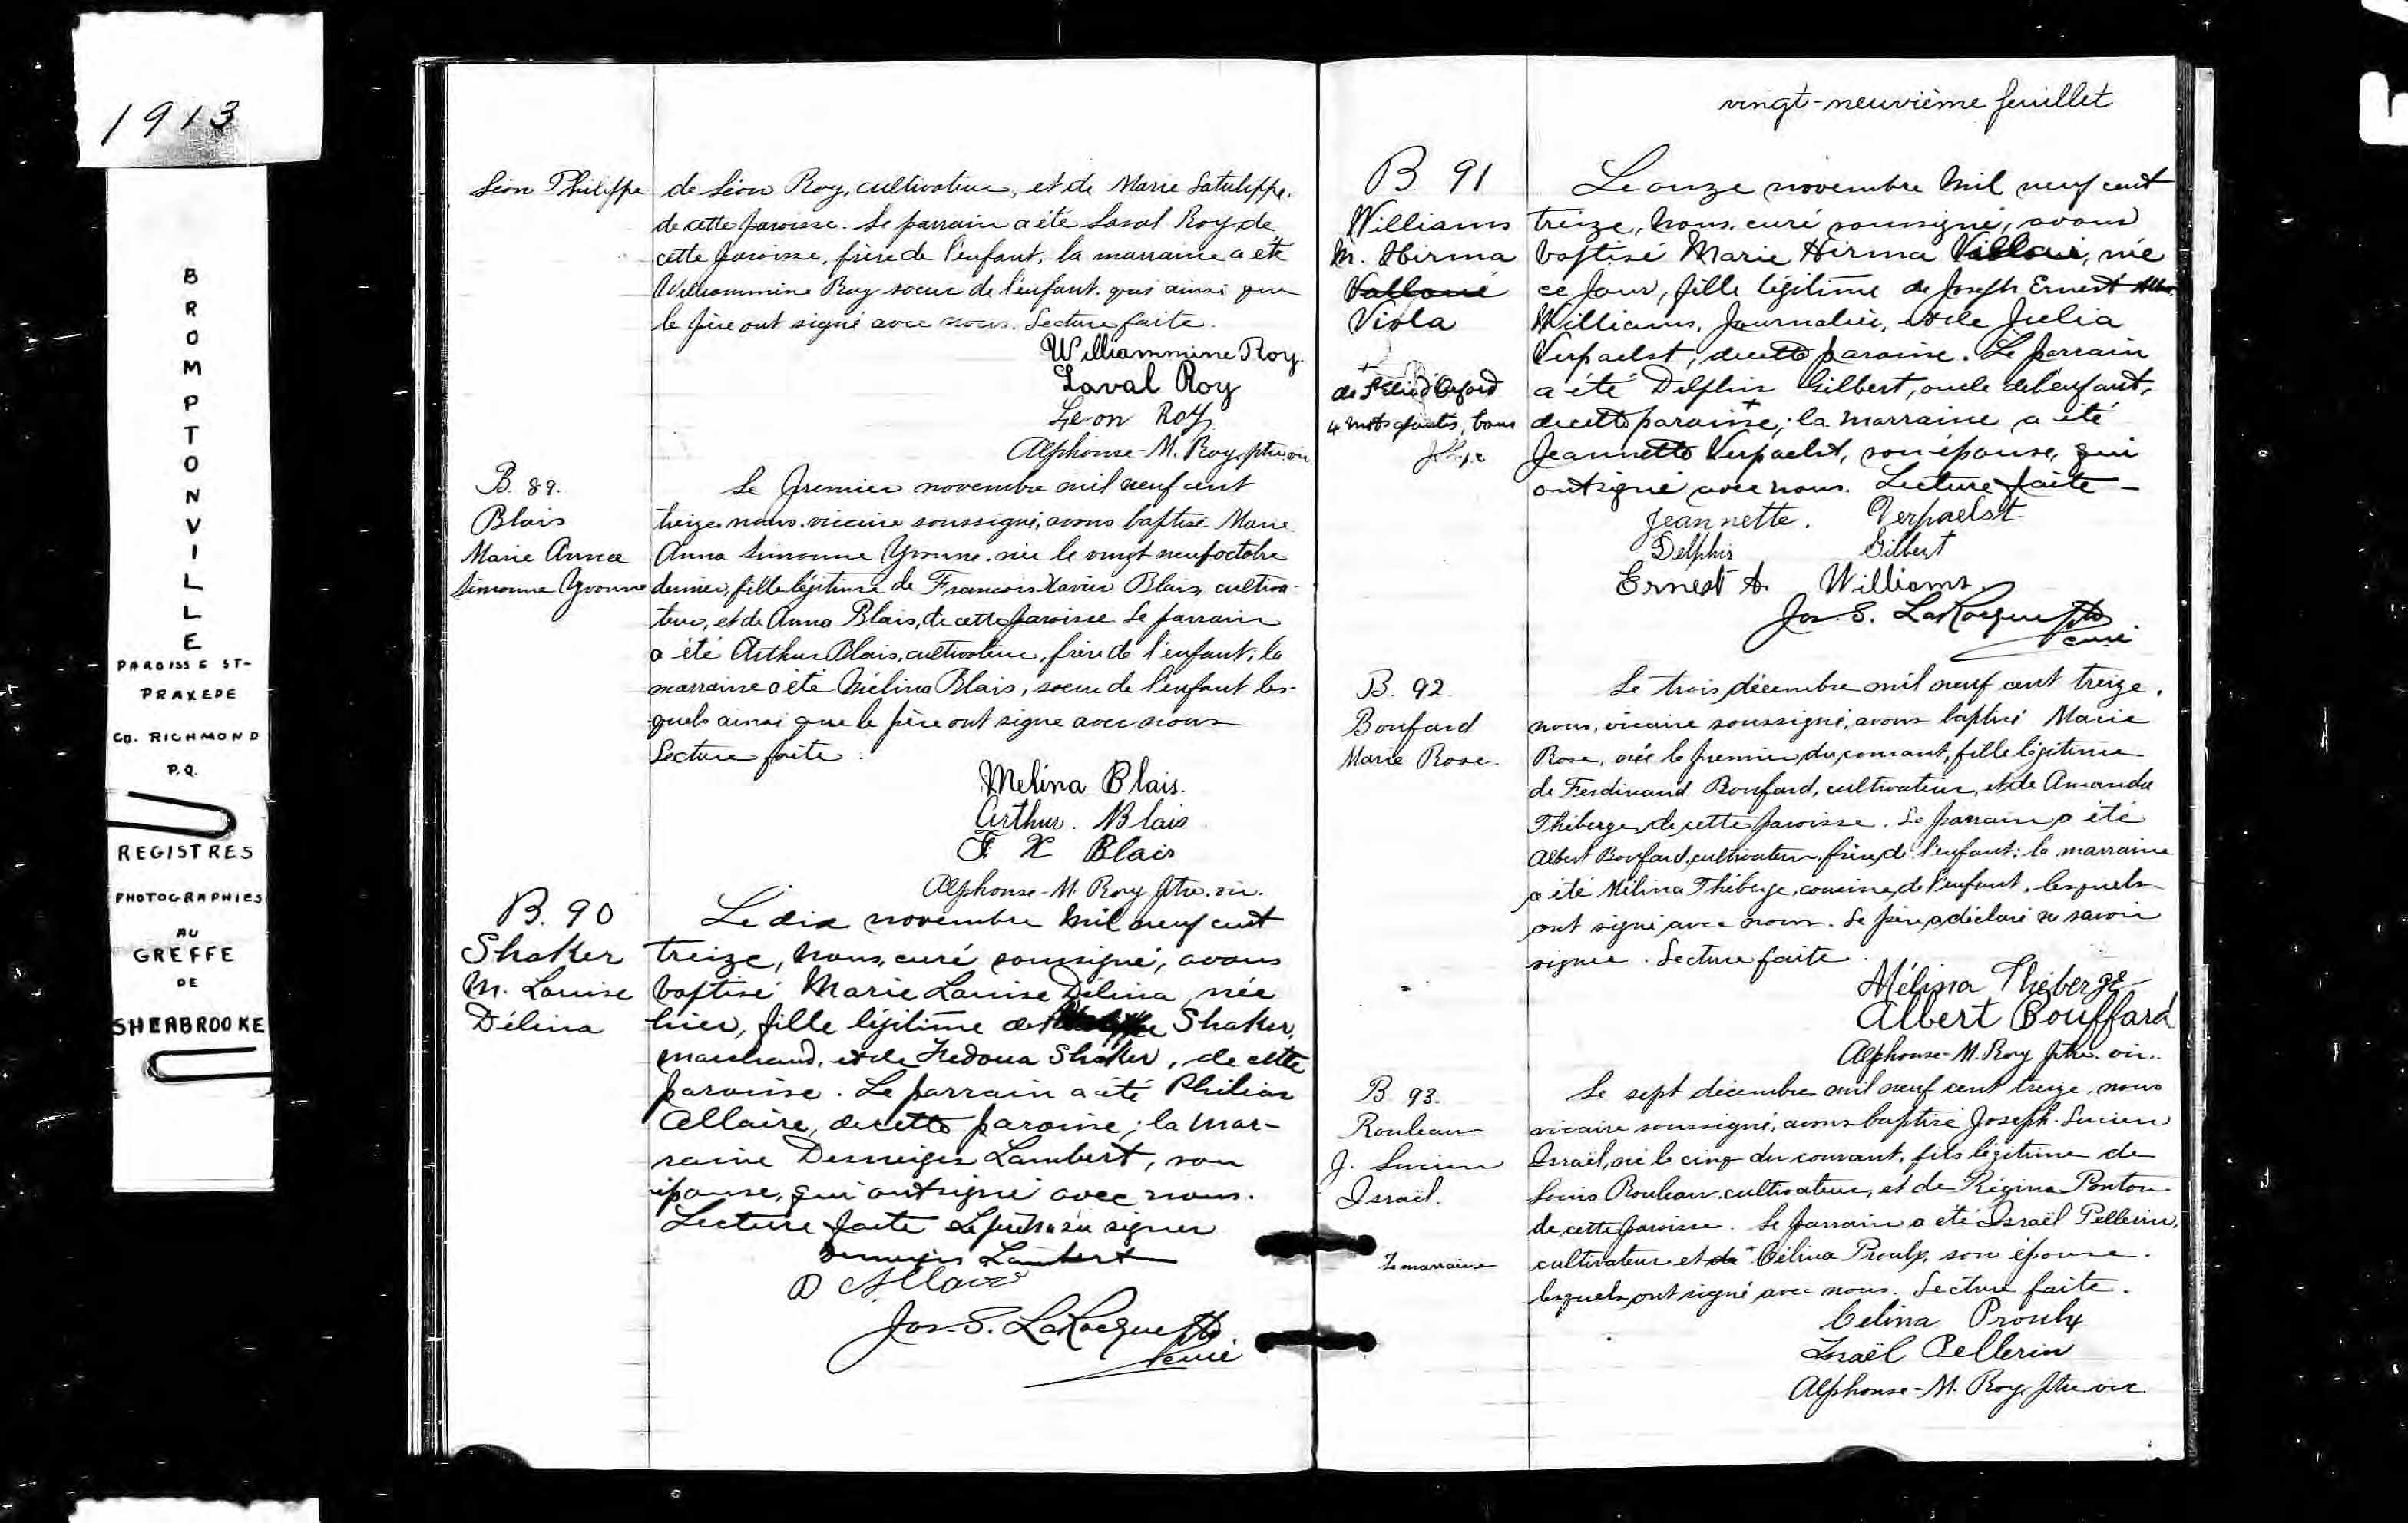 1913
BROMPTONVILLE
PAROISSE ST-
PRAXEDE
CO. RICHMOND
P.Q.
REGISTRES
PHOTOGRAPHIES
AU
GREFFE
DE
SHERBROOKE
Léon Philippe
de Léon Roy, cultivateur, et de Marie Latulippe,
de cette paroisse. Le parrain a été Laval Roy, de
cette paroisse, frère de l'enfant; la marraine a été
Williammine Roy soeur de l'enfant. qui ainsi que
le père ont signé avec nous. Lecture faite.
Williammine Roy.
Laval Roy
Léon Roy
Alphonse-M. Roy, ptre. vic.
B. 89.
Blais
Marie Anna
Simonne Yvonne
Le premier novembre mil neuf cent
treize nous, vicaire soussigné, avons baptisé Marie
Anna Simonne Yvonne, née le vingt neuf octobre
dernier, fille légitime de Francois Xavier Blais, cultiva-
teur, et de Anna Blais, de cette paroisse Le parrain
a été Arthur Blais, cultivateur, frère de l'enfant; la
marraine a été Mélina Blais, soeur de l'enfant les-
quels ainsi que le père ont signé avec nous
Lecture faite.
Melina Blais.
Arthur. Blais
F X Blais
Alphonse-M. Roy ptre. vic.
B. 90
Shaker
M. Louise
Délina
Le dix novembre mil neuf cent
treize, nous, curé soussigné, avons
baptisé Marie Louise Délina née
hier, fille légitime de Shaker,
marchand, et de Fredoua Shaker, de cette
paroisse. Le parrain a été Philias
Allaire, de cette paroisse; la mar-
raine Desneiges Lambert, son
épouse, qui ont signé avec nous.
Lecture faite Le père n'a su signer
Desneiges Lambert
Allaire
Jos. S. LaRocque Ptr
curé
vingt-neuvième feuillet
B. 91
Williams
M. Hirma
Vallouie
Viola
+
de St Elie d'Orford
4 mots ajoutés, bons
Le onze novembre mil neuf cent
treize, nous, curé soussigné, avons
baptisé Marie Hirma née
ce jour, fille légitime de Joseph Ernest
Williams, journalier, et de Julia
Verpaelst, de cette paroisse. Le parrain
a été Delphis Gilbert, oncle de l'enfant,
de cette paroisse+; la marraine a été
Jeannette Verpaelst, son épouse, qui
ont signé avec nous. Lecture faite—
Jeannette. Verpaelst.
Delphis Gilbert
Ernest A. Williams
Jos. S. LaRocque Ptr
curé
B. 92.
Boufard
Marie Rose.
Le trois décembre mil neuf cent treize,
nous, vicaire soussigné, avons baptisé Marie
Rose, née le premier du courant, fille légitime
de Ferdinand Boufard, cultivateur, et de Amanda
Théberge, de cette paroisse. Le parrain a été
Albert Boufard, cultivateur, frère de l'enfant; la marraine
a été Mélina Théberge, cousine de l'enfant, lesquels
ont signé avec nous. Le père a déclaré ne savoir
signer. Lecture faite.
Mélina Théberge
Albert Bouffard
Alphonse-M. Roy ptre. vic.
B 93.
Rouleau
J. Lucien
Israël.
La marraine
Le sept décembre mil neuf cent treize, nous
vicaire soussigné, avons baptisé Joseph-Lucien
Israël, né le cinq du courant, fils légitime de
Louis Rouleau, cultivateur, et de Régina Ponton
de cette paroisse. Le parrain a été Israël Pellerin,
cultivateur et de + Célina Proulx, son épouse.
lesquels ont signé avec nous. Lecture faite.
Celina Proulx
Israël Pellerin
Alphonse-M. Roy, ptre vic